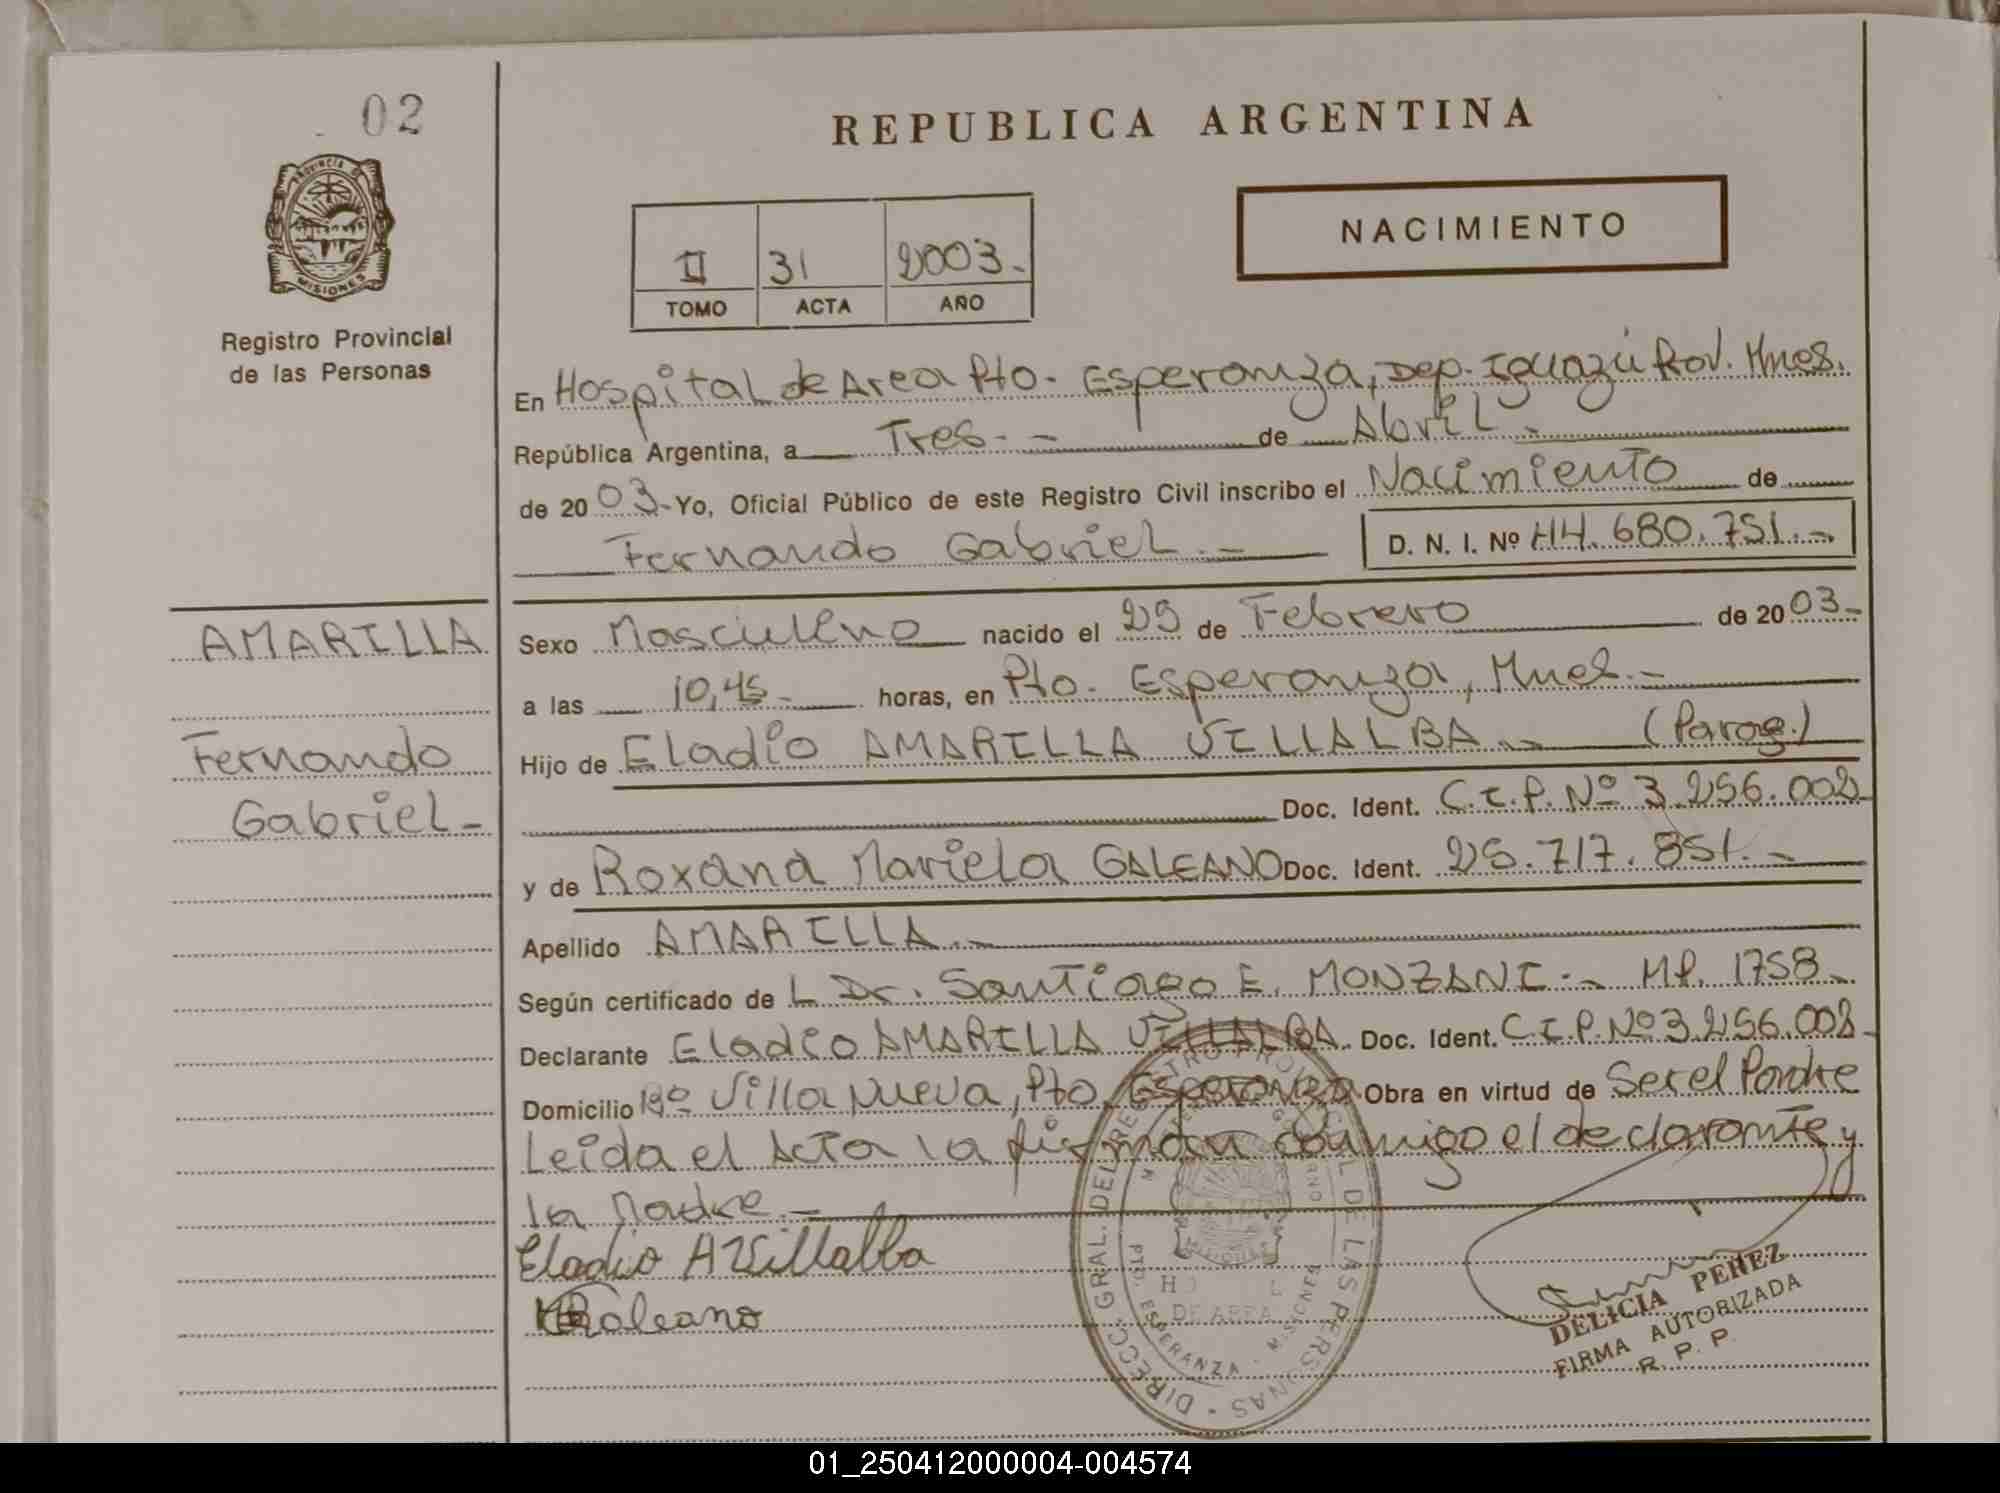 02
PROVINCIA DE
MISIONES
Registro Provincial
de las Personas
REPUBLICA ARGENTINA
NACIMIENTO
II 31 2003.-
TOMO ACTA AÑO
En Hospital de Area Pto. Esperanza, Dep. Iguazú Prov. Mnes.
República Argentina, a Tres.- de Abril.-
de 20 03.- Yo, Oficial Público de este Registro Civil inscribo el Nacimiento de
Fernando Gabriel.- D. N. I. Nº 44.680.751.-
AMARILLA
Fernando
Gabriel-
Sexo Masculino nacido el 25 de Febrero de 20 03.-
a las 10,45.- horas, en Pto. Esperanza, Mnes.-
Hijo de Eladio AMARILLA VILLALBA.- (Parag.)
Doc. Ident. C.I.P. Nº 3.256.002
y de Roxana Mariela GALEANO Doc. Ident. 25.717.851.-
Apellido AMARILLA.-
Según certificado de L Dr. Santiago E. MONZANI.- MP. 1758.-
Declarante Eladio AMARILLA VILLALBA. Doc. Ident. C.I.P. Nº 3.256.002-
Domicilio Bº Villa Nueva, Pto. Esperanza Obra en virtud de Ser el Padre
Leida el Acta la firman conmigo el declarante y
la Madre.-
Eladio A Villalba
Galeano
DIRECC. GRAL. DEL REGISTRO PROVINCIAL DE LAS PERSONAS
DE AREA
PTO. ESPERANZA - MISIONES
DELICIA PEREZ
FIRMA AUTORIZADA
R. P. P.
01_250412000004-004574